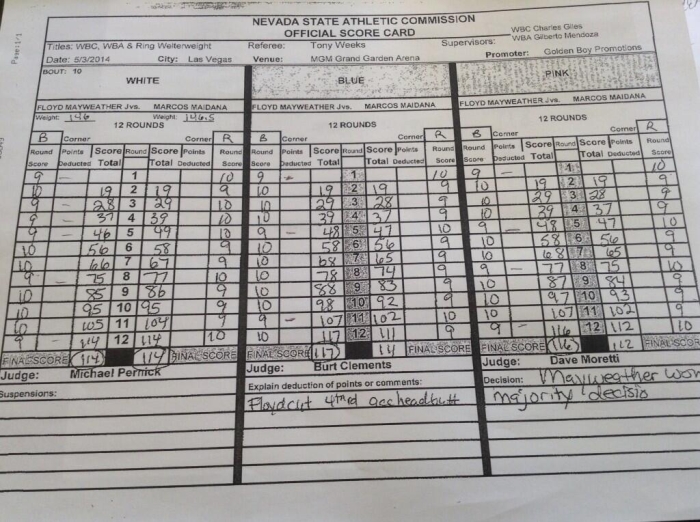 NEVADA STATE ATHLETIC COMMISSION
OFFICIAL SCORE CARD
Titles: WBC, WBA & Ring Welterweight Referee: Tony Weeks Supervisors: WBC Charles Giles
WBA Gilberto Mendoza
Date: 5/3/2014 City: Las Vegas Venue: MGM Grand Garden Arena Promoter: Golden Boy Promotions
BOUT: 10
WHITE BLUE PINK
FLOYD MAYWEATHER J vs. MARCOS MAIDANA FLOYD MAYWEATHER J vs. MARCOS MAIDANA FLOYD MAYWEATHER J vs. MARCOS MAIDANA
Weight: 146 Weight: 146.5
12 ROUNDS 12 ROUNDS 12 ROUNDS
B Corner Corner R B Corner Corner R B Corner Corner R
Round Score Points Deducted Score Total Round Score Total Points Deducted Round Score Round Score Points Deducted Score Total Round Score Total Points Deducted Round Score Round Score Points Deducted Score Total Round Score Total Points Deducted Round Score
9 1 10 9 - 1 10 9 - 1 10
10 19 2 19 9 10 19 2 19 9 10 19 2 19 9
9 - 28 3 29 10 10 29 3 28 9 10 29 3 28 9
9 - 37 4 39 10 10 39 4 37 9 10 39 4 37 9
9 - 46 5 49 10 9 - 48 5 47 10 9 - 48 5 47 10
10 56 6 58 9 10 58 6 56 9 10 58 6 56 9
10 66 7 67 9 10 68 7 65 9 10 68 7 65 9
9 - 75 8 77 10 10 78 8 74 9 9 - 77 8 75 10
10 85 9 86 9 10 88 9 83 9 10 87 9 84 9
10 95 10 95 9 10 98 10 92 9 10 97 10 93 9
10 105 11 104 9 9 - 107 11 102 10 10 107 11 102 9
9 - 114 12 114 10 10 117 12 111 9 9 - 116 12 112 10
FINAL SCORE 114 114 FINAL SCORE FINAL SCORE 117 111 FINAL SCORE FINAL SCORE 116 112 FINAL SCORE
Judge: Michael Pernick Judge: Burt Clements Judge: Dave Moretti
Suspensions: Explain deduction of points or comments: Decision: Mayweather won
Floyd cut 4th rd acc headbutt majority decisio